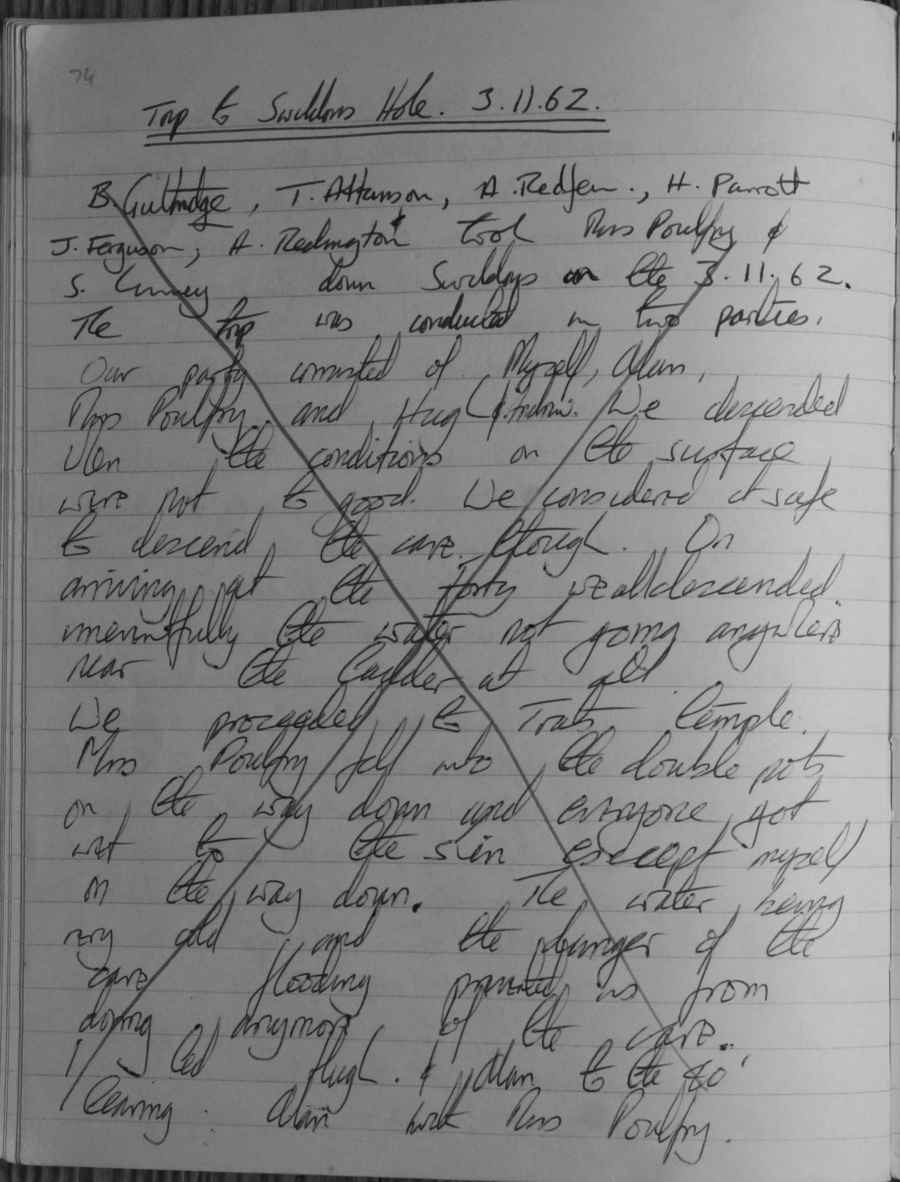 74
Trip to Swildons Hole. 3.11.62.
B. Guttridge, T. Atkinson, A. Redfern., H. Parrott
J. Ferguson, A. Redington took Mrs Poultry &
S. down Swildons on the 3.11.62.
The trip was conducted in two parties.
Our party consisted of Myself, Alan,
Mrs Poultry and Hugh We descended
When the conditions on the surface
were not to good. We considered it safe
to descend the cave though. On
arriving at the forty we all descended
uneventfully the water not going anywhere
near the ladder at all
We proceeded to Trats temple.
Mrs Poultry fell into the double pots
on the way down and everyone got
wet to the skin except myself
on the way down. The water being
very cold and the danger of the
cave flooding prevented us from
doing anymore of the cave.
I led Hugh. & Alan to the 40'
leaving. Alan with Mrs Poultry.